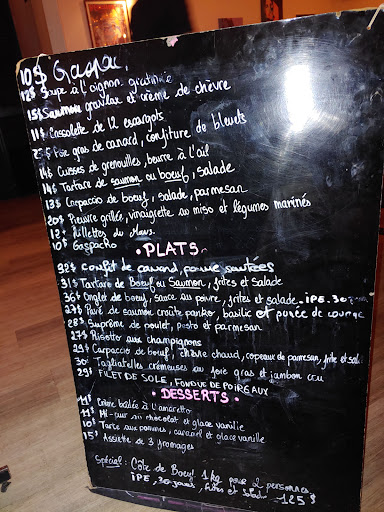 10$ Gaspa
12$ Soupe à l'oignon gratinée
15$ Saumon gravlax et crème de chèvre
11$ Cassolette de 12 escargots
Foie gras de canard, confiture de bleuets
14$ Cuisses de grenouilles, beurre à l'ail
14$ Tartare de saumon ou boeuf, salade
13$ Carpaccio de boeuf, salade, parmesan
20$ Pieuvre grillée, vinaigrette au miso et légumes marinés
12$ Rillettes du Mans
10$ Gaspacho
• PLATS •
32$ Confit de canard, pomme sautées
31$ Tartare de Boeuf ou Saumon, frites et salade
36$ Onglet de boeuf, sauce au poivre, frites et salade - IPE. 30
27$ Pavé de saumon croute panko, basilic et purée de courge
28$ Suprême de poulet, pesto et parmesan
27$ Risotto aux champignons
29$ Carpaccio de boeuf, chèvre chaud, copeaux de parmesan, frite et sal
Tagliatelles crémeuses au foie gras et jambon cru
29$ FILET DE SOLE, FONDUE DE POIREAUX
• DESSERTS •
11$ Crème brûlée à l'amaretto
11$ Mi-cuit au chocolat et glace vanille
10$ Tarte aux pommes, caramel et glace vanille
15$ Assiette de 3 fromages
Spécial : Côte de Boeuf 1kg pour 2 personnes
IPE, 30 jours, frites et salade - 125$